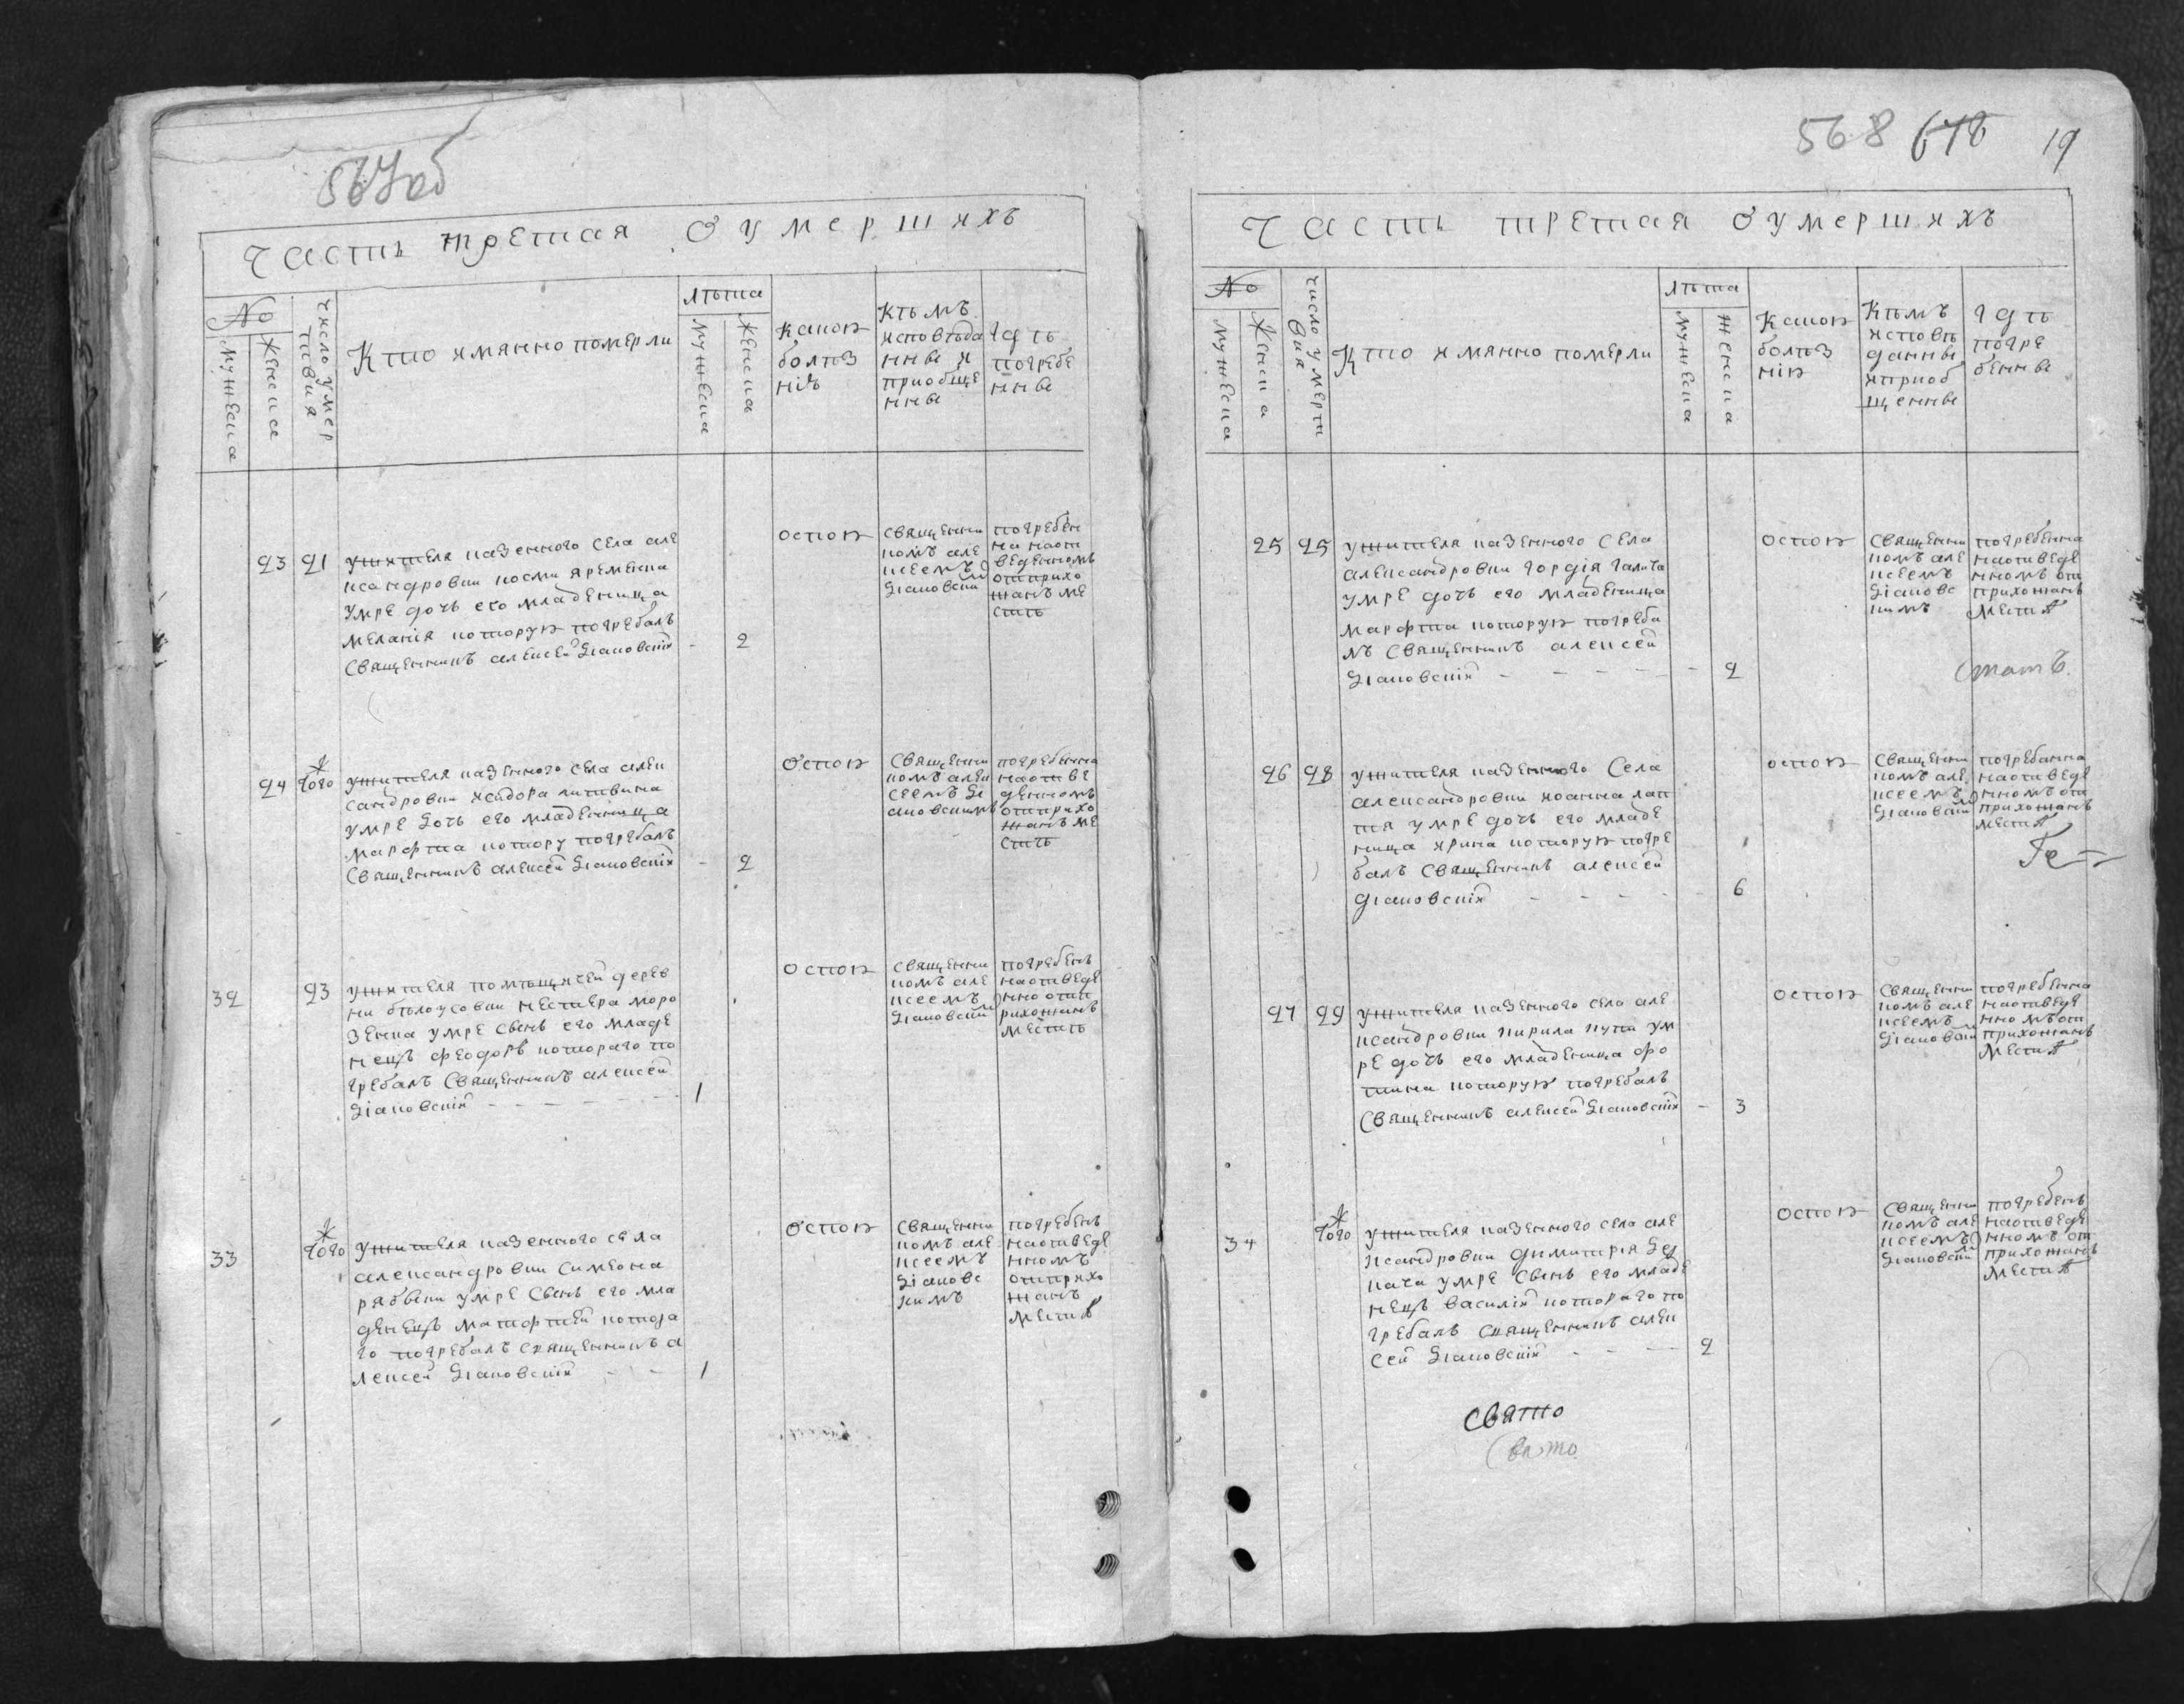 567об
Часть третая о умершихъ
No
Мужеска
Женска
Число умер
твия
Кто имянно померли
лѣта
Мужеска
Женска
Какою
болѣз
нію
Кѣмъ
исповѣда
нны и
приобще
нны
гдѣ
погребе
нны
23 21
ужителя казенного села але
ксандровки космы яременка
умре дочь его младеница
мелания которую погребалъ
священникъ алексей Діаковскій - 2
оспою
священни
комъ але
ксеемъ
Діаковски
погребен
на наот
веденномъ
отприхо
жанъ ме
стѣ
24 того
ужителя казенного села алек
сандровки исидора литвина
умре дочь его младеница
марфта котору погребалъ
священникъ алексей Діаковскій - 2
оспою
священни
комъ алек
сеемъ Ді
аковскимъ
погребенна
наотве
денномъ
отприхо
жанъ ме
стѣ
32 23
ужителя помѣщичей дерев
ни бѣлоусовки нестера моро
зенка умре сынъ его младе
нецъ феодоръ котораго по
гребалъ священникъ алексей
Діаковскій - - - - - - 1
оспою
священни
комъ але
ксеемъ
Діаковски
погребенъ
наотведе
нно отп
рихожанъ
местѣ
33 того
ужителя казенного села
александровки симеона
рябвки умре сынъ его мла
денецъ матфтей котора
го погребалъ священникъ а
лексей Діаковскій - - 1
оспою
священни
комъ але
ксеемъ
Діаковс
кимъ
погребенъ
наотведе
нномъ
отприхо
жанъ
местѣ
568 678 19
Часть третая о умершихъ
No
Мужеска
Женска
Число умерти
вия
Кто имянно померли
лѣта
Мужеска
Женска
Какою
болѣз
нію
Кѣмъ
исповѣ
данны
иприоб
щенны
гдѣ
погре
бенны
25 25
ужителя казенного села
александровки гордія галича
умре дочь его младеница
марфта которую погреба
лъ священникъ алексей
Діаковскій - - - - - 2
оспою
священни
комъ але
ксеемъ
Діаковс
кимъ
погребенна
наотведе
нномъ от
прихожанъ
местѣ
статъ
26 28
ужителя казенного села
александровки иоанна лап
тя умре дочь его младе
ница ирина которую погре
балъ священникъ алексей
діаковскій - - - - 6
оспою
священни
комъ але
ксеемъ
Діаковски
погребанна
наотведе
нномъ от
прихожанъ
местѣ
27 29
ужителя казенного села але
ксандровки кирила кута ум
ре дочь его младеница фо
тина которую погребалъ
священникъ алексей Діаковскій - 3
оспою
священни
комъ але
ксеемъ
Діаковски
погребенна
наотведе
нномъ от
прихожанъ
местѣ
34 того
ужителя казенного села але
ксандровки димитрія Де
кача умре сынъ его младе
нецъ василій котораго по
гребалъ священникъ алек
сей Діаковскій - - - 2
оспою
священни
комъ але
ксеемъ
Діаковски
погребенъ
наотведе
нномъ от
прихожанъ
местѣ
свято
(вято